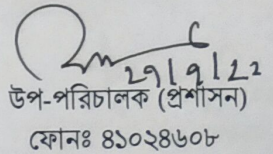 ২১/৭/২২
উপ-পরিচালক (প্রশাসন)
ফোনঃ ৪১০২৪৬০৮